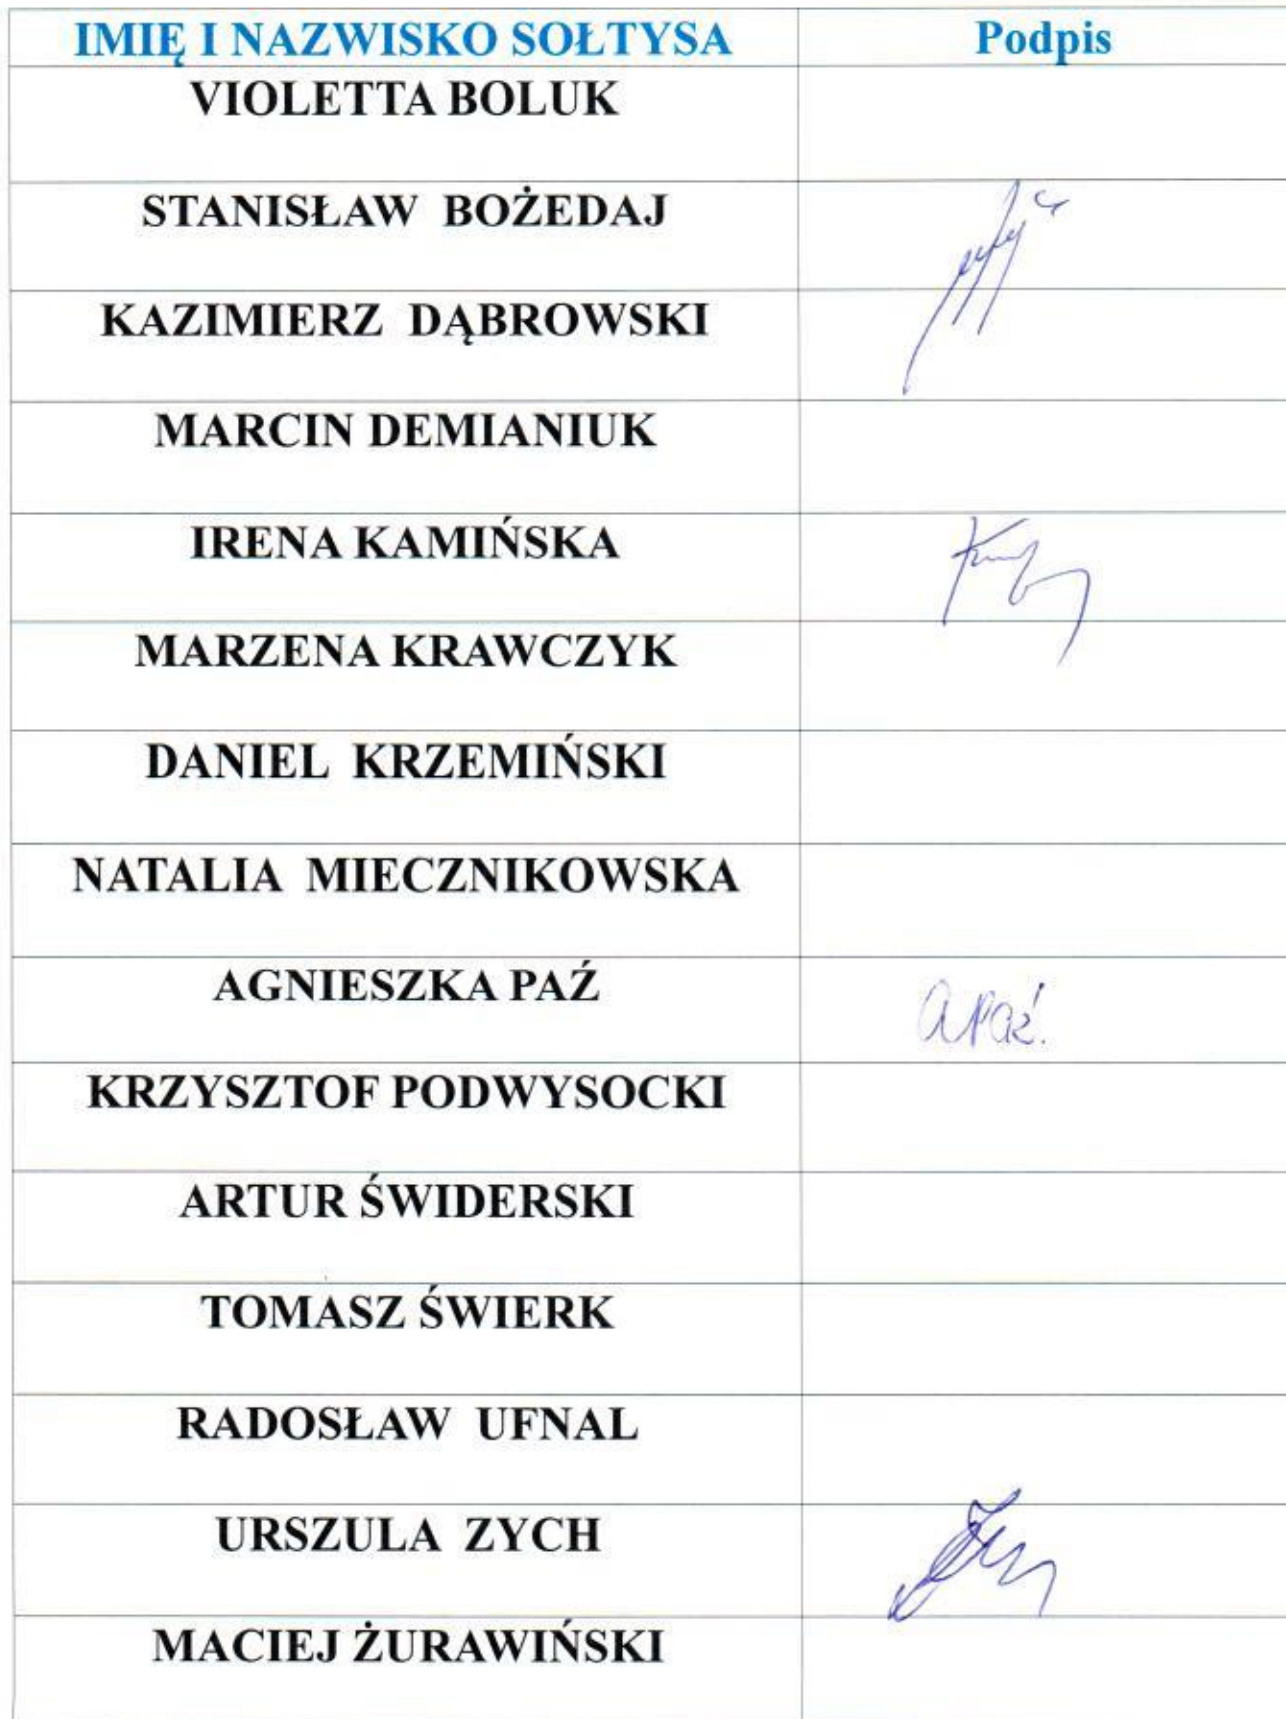 IMIĘ I NAZWISKO SOŁTYSA Podpis
VIOLETTA BOLUK
STANISŁAW BOŻEDAJ
KAZIMIERZ DĄBROWSKI
MARCIN DEMIANIUK
IRENA KAMIŃSKA
MARZENA KRAWCZYK
DANIEL KRZEMIŃSKI
NATALIA MIECZNIKOWSKA
AGNIESZKA PAŹ APaź.
KRZYSZTOF PODWYSOCKI
ARTUR ŚWIDERSKI
TOMASZ ŚWIERK
RADOSŁAW UFNAL
URSZULA ZYCH
MACIEJ ŻURAWIŃSKI